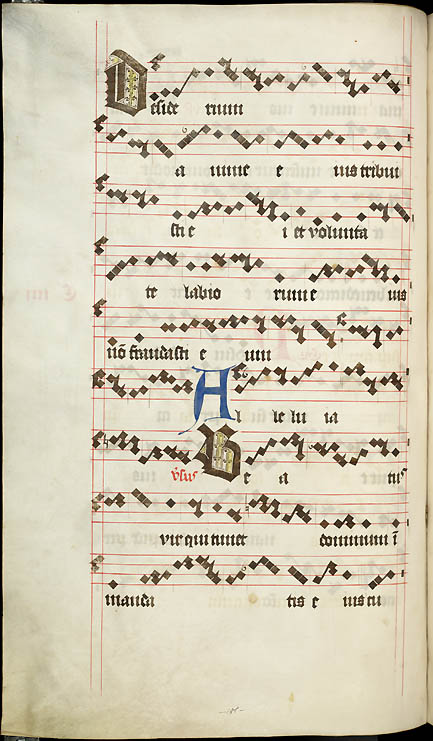 Deside rium
a nime e ius tribui
sti e i et volunta
te labio rum e ius
nō fraudasti e um
Al le lu ia
v̄sus Be a tus
vir qui timet dominum ī
manda tis e ius cu